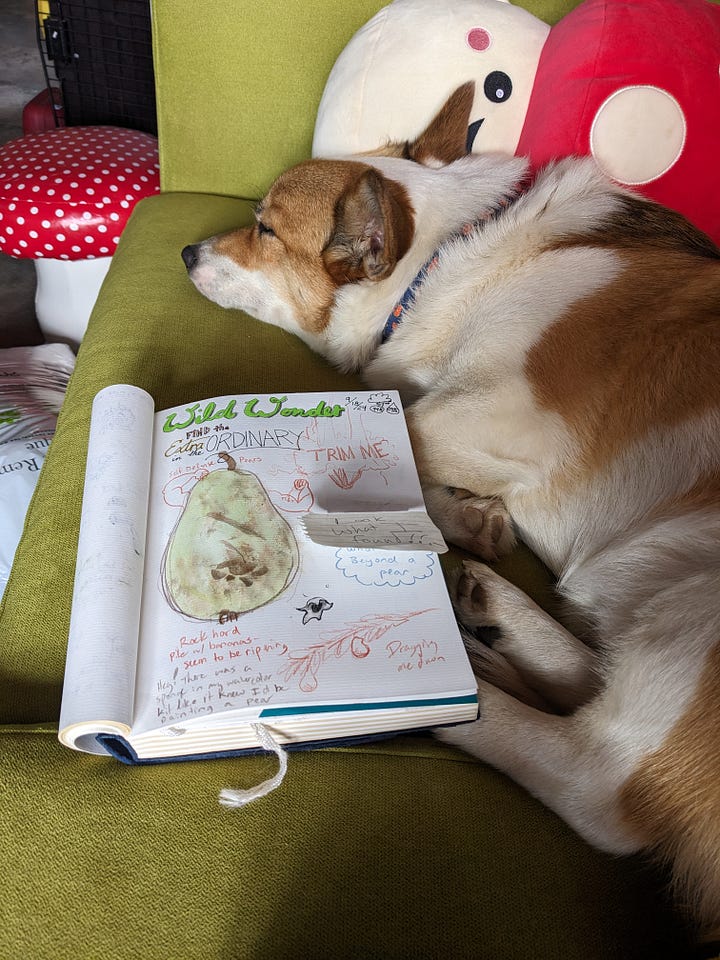 Wild Wonder
9/18/24
FIND the
Extra ORDINARY
in the
Pears
TRIM ME
Look
What I
found...
Beyond a
pear
Rock hard
put w/ bananas-
seem to be ripening
Hey! There was a
sponge in my watercolor
kit like it knew I'd be
painting a pear
Dragging
me down
Rem